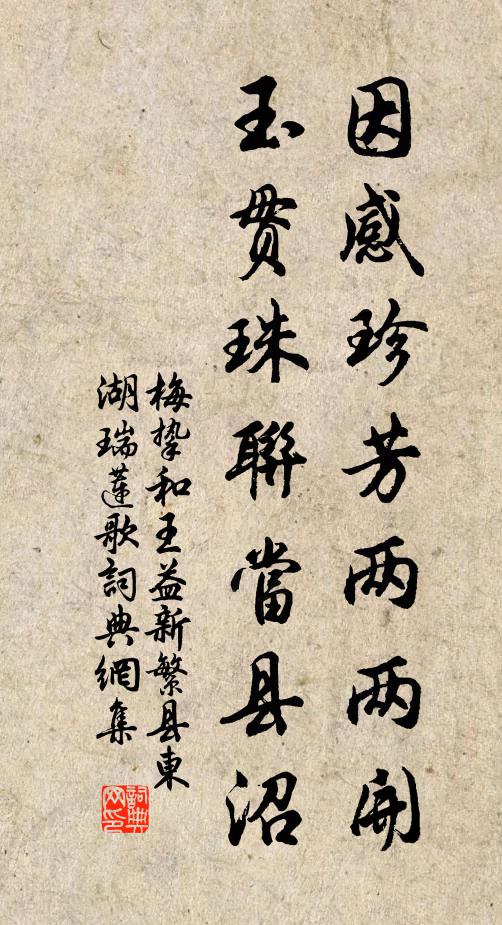 因感珍芳两两開
玉贯珠聯當县沼
梅挚和王益新繁县東
湖瑞蓮歌詞典網集
詞典网印